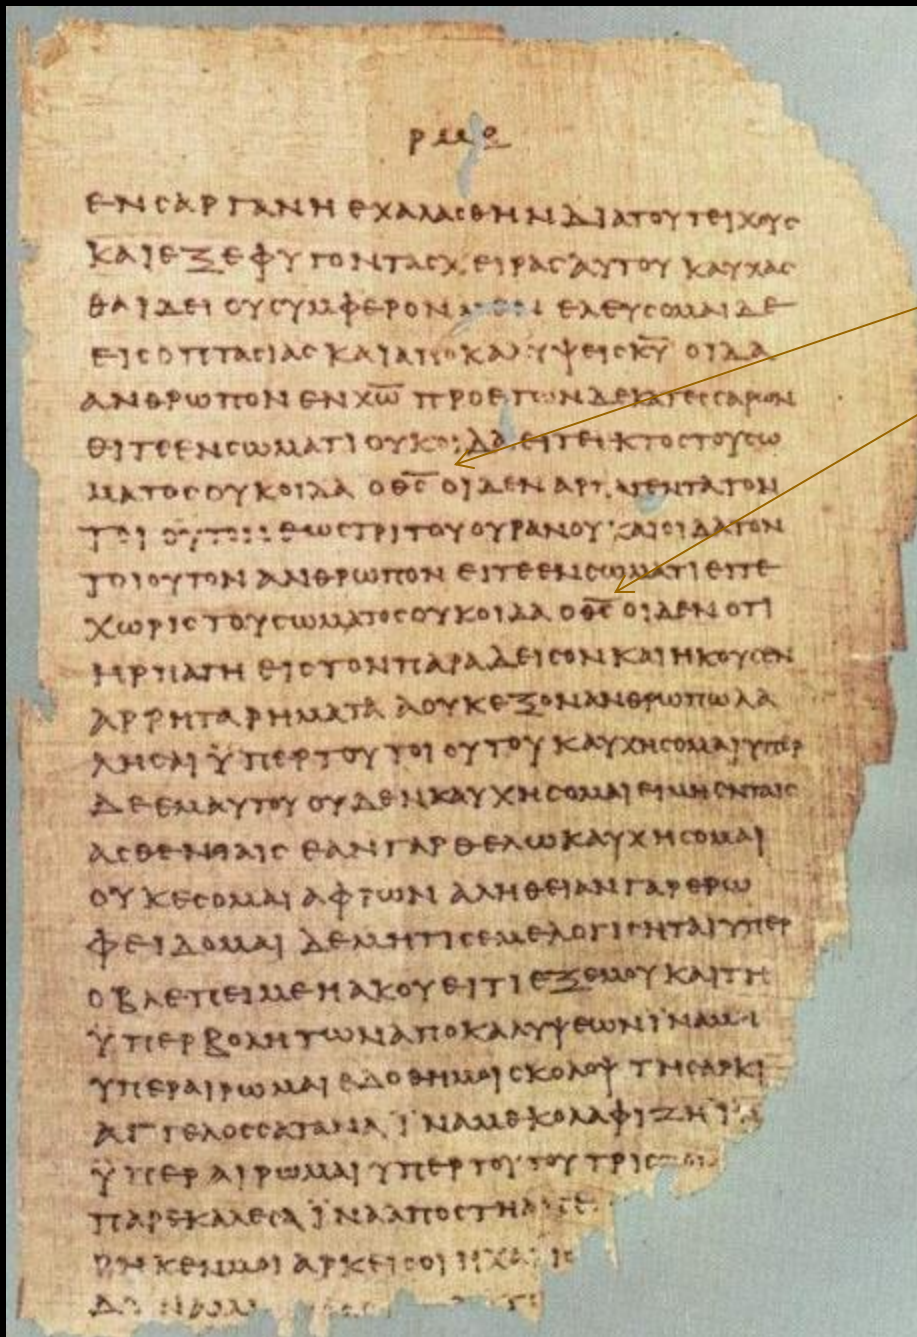 ΡΜΘ
ΕΝ ϹΑΡΓΑΝΗ ΕΧΑΛΑϹΘΗΝ ΔΙΑ ΤΟΥ ΤΕΙΧΟΥϹ
ΚΑΙ ΕΞΕΦΥΓΟΝ ΤΑϹ ΧΕΙΡΑϹ ΑΥΤΟΥ ΚΑΥΧΑϹ
ΘΑΙ ΔΕΙ ΟΥ ϹΥΜΦΕΡΟΝ ΜΕΝ ΕΛΕΥϹΟΜΑΙ ΔΕ
ΕΙϹ ΟΠΤΑϹΙΑϹ ΚΑΙ ΑΠΟΚΑΛΥΨΕΙϹ Κ̅Υ̅ ΟΙΔΑ
ΑΝΘΡΩΠΟΝ ΕΝ Χ̅Ω̅ ΠΡΟ ΕΤΩΝ ΔΕΚΑΤΕϹϹΑΡΩΝ
ΕΙΤΕ ΕΝ ϹΩΜΑΤΙ ΟΥΚ ΟΙΔΑ ΕΙΤΕ ΕΚΤΟϹ ΤΟΥ ϹΩ
ΜΑΤΟϹ ΟΥΚ ΟΙΔΑ Ο Θ̅Ϲ̅ ΟΙΔΕΝ ΑΡΠΑΓΕΝΤΑ ΤΟΝ
ΤΟΙΟΥΤΟΝ ΕΩϹ ΤΡΙΤΟΥ ΟΥΡΑΝΟΥ ΚΑΙ ΟΙΔΑ ΤΟΝ
ΤΟΙΟΥΤΟΝ ΑΝΘΡΩΠΟΝ ΕΙΤΕ ΕΝ ϹΩΜΑΤΙ ΕΙΤΕ
ΧΩΡΙϹ ΤΟΥ ϹΩΜΑΤΟϹ ΟΥΚ ΟΙΔΑ Ο Θ̅Ϲ̅ ΟΙΔΕΝ ΟΤΙ
ΗΡΠΑΓΗ ΕΙϹ ΤΟΝ ΠΑΡΑΔΕΙϹΟΝ ΚΑΙ ΗΚΟΥϹΕΝ
ΑΡΡΗΤΑ ΡΗΜΑΤΑ Α ΟΥΚ ΕΞΟΝ ΑΝΘΡΩΠΩ ΛΑ
ΛΗϹΑΙ ΫΠΕΡ ΤΟΥ ΤΟΙΟΥΤΟΥ ΚΑΥΧΗϹΟΜΑΙ ΥΠΕΡ
ΔΕ ΕΜΑΥΤΟΥ ΟΥΔΕΝ ΚΑΥΧΗϹΟΜΑΙ ΕΙ ΜΗ ΕΝ ΤΑΙϹ
ΑϹΘΕΝΕΙΑΙϹ ΕΑΝ ΓΑΡ ΘΕΛΩ ΚΑΥΧΗϹΟΜΑΙ
ΟΥΚ ΕϹΟΜΑΙ ΑΦΡΩΝ ΑΛΗΘΕΙΑΝ ΓΑΡ ΕΡΩ
ΦΕΙΔΟΜΑΙ ΔΕ ΜΗ ΤΙϹ ΕΜΕ ΛΟΓΙϹΗΤΑΙ ΥΠΕΡ
Ο ΒΛΕΠΕΙ ΜΕ Η ΑΚΟΥΕΙ ΤΙ ΕΞ ΕΜΟΥ ΚΑΙ ΤΗ
ΫΠΕΡΒΟΛΗ ΤΩΝ ΑΠΟΚΑΛΥΨΕΩΝ ΪΝΑ ΜΗ
ΥΠΕΡΑΙΡΩΜΑΙ ΕΔΟΘΗ ΜΟΙ ϹΚΟΛΟΨ ΤΗ ϹΑΡΚΙ
ΑΓΓΕΛΟϹ ϹΑΤΑΝΑ ΪΝΑ ΜΕ ΚΟΛΑΦΙΖΗ
ΫΠΕΡΑΙΡΩΜΑΙ ΥΠΕΡ ΤΟΥΤΟΥ ΤΡΙϹ
ΠΑΡΕΚΑΛΕϹΑ ΪΝΑ ΑΠΟϹΤΗ
ΡΗΚΕΝ ΜΟΙ ΑΡΚΕΙ ϹΟΙ Η ΧΑΡΙϹ